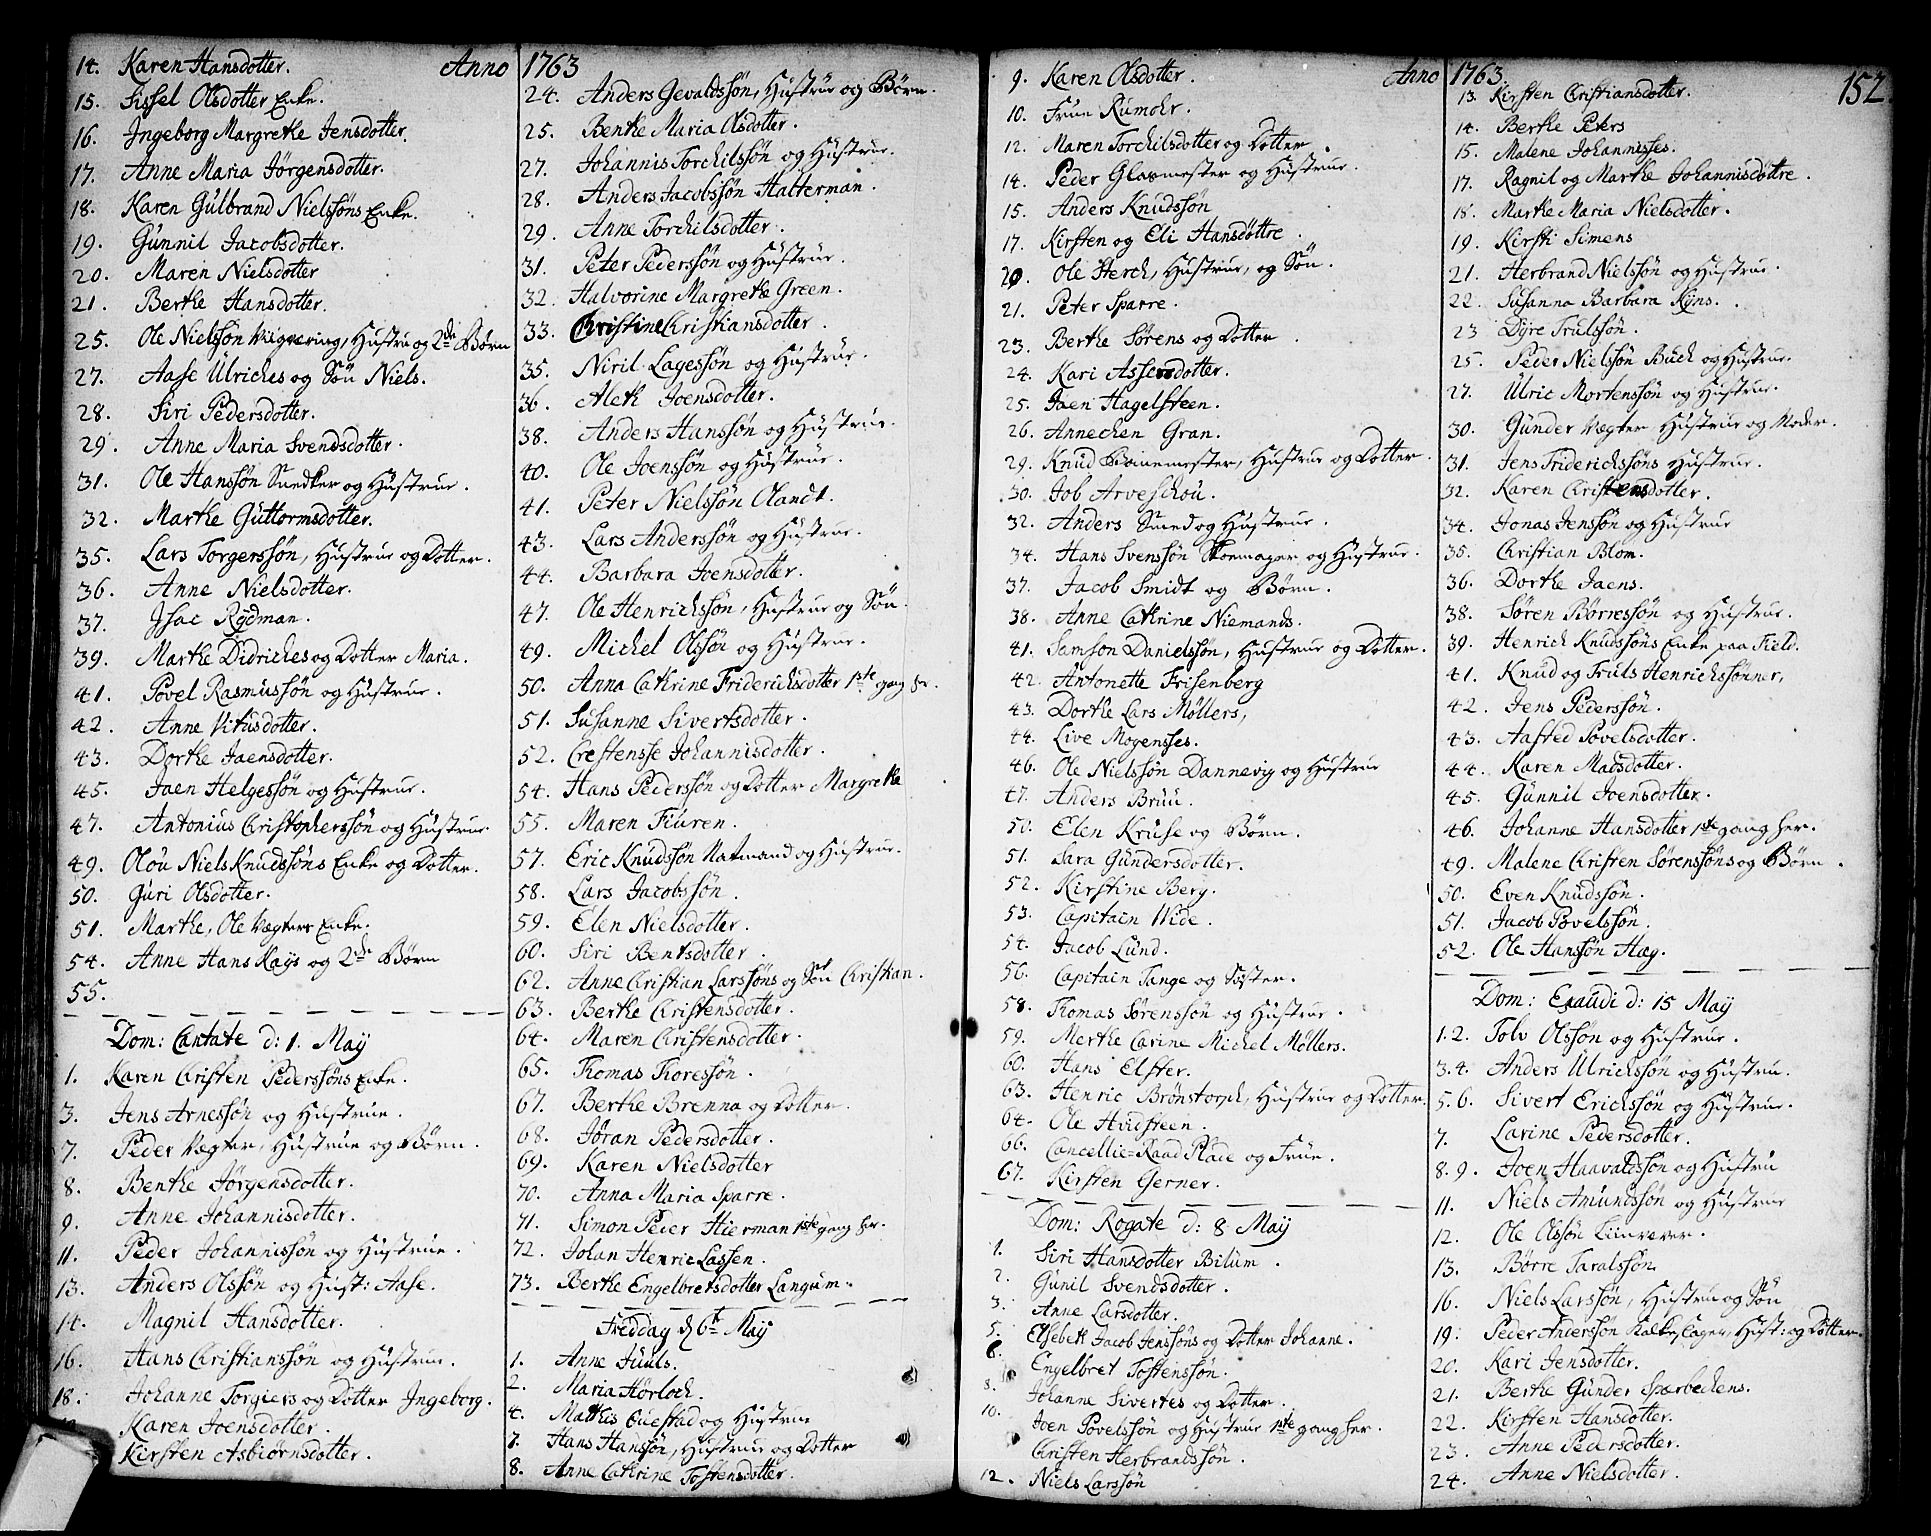 Anno 1763
14. Karen Hansdotter.
15. Sissel Olsdotter Enke.
16. Ingeborg Margrethe Jensdotter.
17. Anne Maria Jörgensdotter.
18. Karen Gülbrand Nielssöns Enke.
19. Günnil Jacobsdotter.
20. Maren Nielsdotter
21. Berthe Hansdotter.
25. Ole Nielssön Hustru og 2de Börn
27. Aase Ülriches og Sön Niels.
28. Siri Pedersdotter.
29. Anne Maria Svendsdotter.
31. Ole Hanssön Snedker og Hüstrue.
32. Marthe Güttormsdotter.
35. Lars Torgerssön, Hüstrue og Dotter.
36. Anne Nielsdotter.
37. Isac Rydman.
39. Marthe Didriches og Dotter Maria.
41. Povel Rasmussön og Hüstrue.
42. Anne Vitusdotter.
43. Dorthe Jaensdotter.
45. Jaen Helgessön og Hüstrue.
47. Antonius Christopherssön og Hüstrue.
49. Olou Niels Knudssöns Enke og Dotter.
50. Guri Olsdotter.
51. Marthe, Ole Vægters Enke.
54. Anne Hans Kays og 2de Börn
55.
Dom: Cantate d: 1. Maÿ
1. Karen Christen Pederssöns Enke.
3. Jens Arnessön og Hüstrue.
7. Peder Vægter, Hüstrue og Börn.
8. Benthe Jörgensdotter.
9. Anne Johannisdotter.
11. Peder Johannissön og Hüstrue.
13. Anders Olssön og Hust: Aase.
14. Magnil Hansdotter.
16. Hans Christianssön og Hüstrue.
18. Johanne Torgiers og Dotter Ingeborg.
Karen Joensdotter.
Kirsten Asbiörnsdotter.
24. Anders Gevaldssön, Hüstrue og Börn.
25. Benthe Maria Olsdotter.
27. Johannis Torchilssön og Hüstrue.
28. Anders Jacobssön Halterman.
29. Anne Torchilsdotter.
31. Peter Pederssön og Hüstrue.
32. Halvorine Margrethe Green.
33. Christine Christiansdotter.
35. Niril Lagessön og Hüstrue.
36. Aleth Joensdotter.
38. Anders Hanssön og Hüstrue.
40. Ole Joenssön og Hüstrue.
41. Peter Nielssön Olandt.
43. Lars Anderssön og Hüstrue.
44. Barbara Joensdotter.
47. Ole Henrichssön, Hustrue og Sön.
49. Michel Olssön og Hüstrue.
50. Anna Cathrine Friderichsdotter 1ste gang her.
51. Susanne Sivertsdotter.
52. Crestensse Johannisdotter.
54. Hans Pederssön og Dotter Margrethe
55. Maren Fiuren.
57. Eric Knudssön Natmand og Hustrue.
58. Lars Jacobssön.
59. Elen Nielsdotter.
60. Siri Bentsdotter.
62. Anne Christian Larssöns og Sön Christian.
63. Berthe Christensdotter.
64. Maren Christensdotter.
65. Thomas Thoressön.
67. Berthe Brenna og Dotter.
68. Jöran Pedersdotter.
69. Karen Nielsdotter
70. Anna Maria Sparre.
71. Simon Peder Hierman 1ste gang her.
72. Johan Henric Lassen.
73. Berthe Engelbretsdotter Langum.
Freddag d 6te Maÿ
1. Anne Jüuls.
2. Maria Hörloch.
4. Mathis Questad og Hustrue
7. Hans Hanssön, Hustrue og Dotter
8. Anne Cathrine Tostensdotter.
Anno 1763. 152.
9. Karen Olsdotter.
10. Frue Rumohr.
12. Maren Torchilsdotter og Dotter.
14. Peder Glasmester og Hustrue.
15. Anders Knudssön
17. Kirsten og Eli Hansdöttre.
20. Ole Herch, Hustrue, og Sön.
21. Peter Sparre.
23. Berthe Sörens og Dotter.
24. Kari Assersdotter.
25. Jaen Hagelsteen.
26. Annechen Gran.
29. Knud Hustrue og Dotter.
30. Job Arveschou.
32. Anders Smed og Hustrue.
34. Hans Svenssön Skoemager og Hustrue.
37. Jacob Smidt og Börn.
38. Anne Cathrine Niemands.
41. Samson Danielssön, Hustrue og Dotter.
42. Antonette Frisenberg
43. Dorthe Lars Möllers,
44. Live Mogensses.
46. Ole Nielssön Dannevig og Hustrue
47. Anders Bruu.
50. Elen Kruse og Börn.
51. Sara Gundersdotter.
52. Kirstine Berg.
53. Capitain Wide.
54. Jacob Lund.
56. Capitain Tange og Söster.
58. Thomas Sörenssön og Hustrue.
59. Merthe Carine Michel Möllers.
60. Hans Elster.
63. Henric Brönstorph, Hustrue og Dotter.
64. Ole Hvidsteen.
66. Cancellie-Raad Plade og Frue.
67. Kirsten Gerner.
Dom: Rogate d: 8 Maÿ
1. Siri Hansdotter Bilum.
2. Gunil Svendsdotter.
3. Anne Larsdotter.
5. Elsebeth Jacob Jenssöns og Dotter Johanne.
6. Engelbret Tostenssön.
8. Johanne Sivertes og Dotter.
10. Joen Povelssön og Hustrue 1ste gang her.
Christen Herbrandssön.
12. Niels Larssön
13. Kirsten Christiansdotter.
14. Berthe Peters
15. Malene Johannisses.
17. Ragnil og Marthe Johannisdöttre.
18. Marthe Maria Nielsdotter.
19. Kirsti Simens
21. Herbrand Nielssön og Hustrue.
22. Susanna Barbara Ryns.
23 Dyre Trulssön.
25. Peder Nielssön Buch og Hustrue.
27. Ulric Mortenssön og Hustrue.
30. Günder Vægter Hustrue og Moder.
31. Jens Friderichssöns Hustrue.
32. Karen Christensdotter.
34. Jonas Jenssön og Hustrue
35. Christian Blom.
36. Dorthe Jaens.
38. Sören Börressön og Hustrue.
39. Henrich Knudssöns Enke paa Field.
41. Knud og Truls Henrichssönner,
42. Jens Pederssön.
43. Aasted Povelsdotter.
44. Karen Madsdotter.
45. Günnil Joensdotter.
46. Johanne Hansdotter 1ste gang her.
49. Malene Christen Sörenssöns og Börn.
50. Even Knudssön.
51. Jacob Povelssön.
52. Ole Hanssön Hæg.
Dom: Exaudi d: 15 Maÿ
1.2. Tolv Olsson og Hustrue.
3.4. Anders Ulrichssön og Hustrue.
5.6. Sivert Erichssön og Hustrue.
7. Larine Pedersdotter.
8.9. Joen Haavaldssön og Hustru
11. Niels Amundssön og Hustrue
12. Ole Olssön Linvæver.
13. Börre Taralssön.
16. Niels Larssön, Hustru og Sön
19. Peder Anderssön Kalkslager, Hust: og Dotter.
20. Kari Jensdotter.
21. Berthe Günder Spærbechens.
22. Kirsten Hansdotter.
23. Anne Pedersdotter.
24. Anne Nielsdotter.